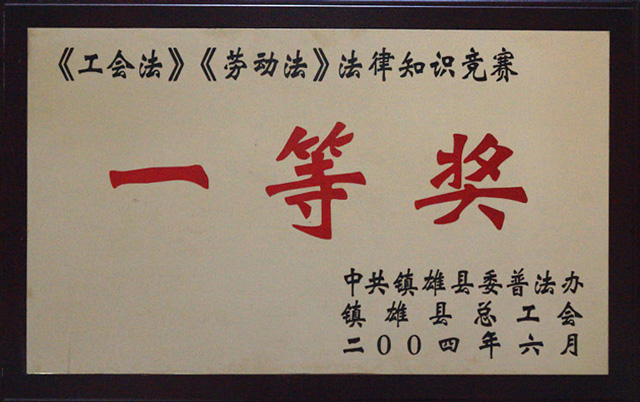 《工会法》《劳动法》法律知识竞赛
一等奖
中共镇雄县委普法办
镇雄县总工会
二00四年六月